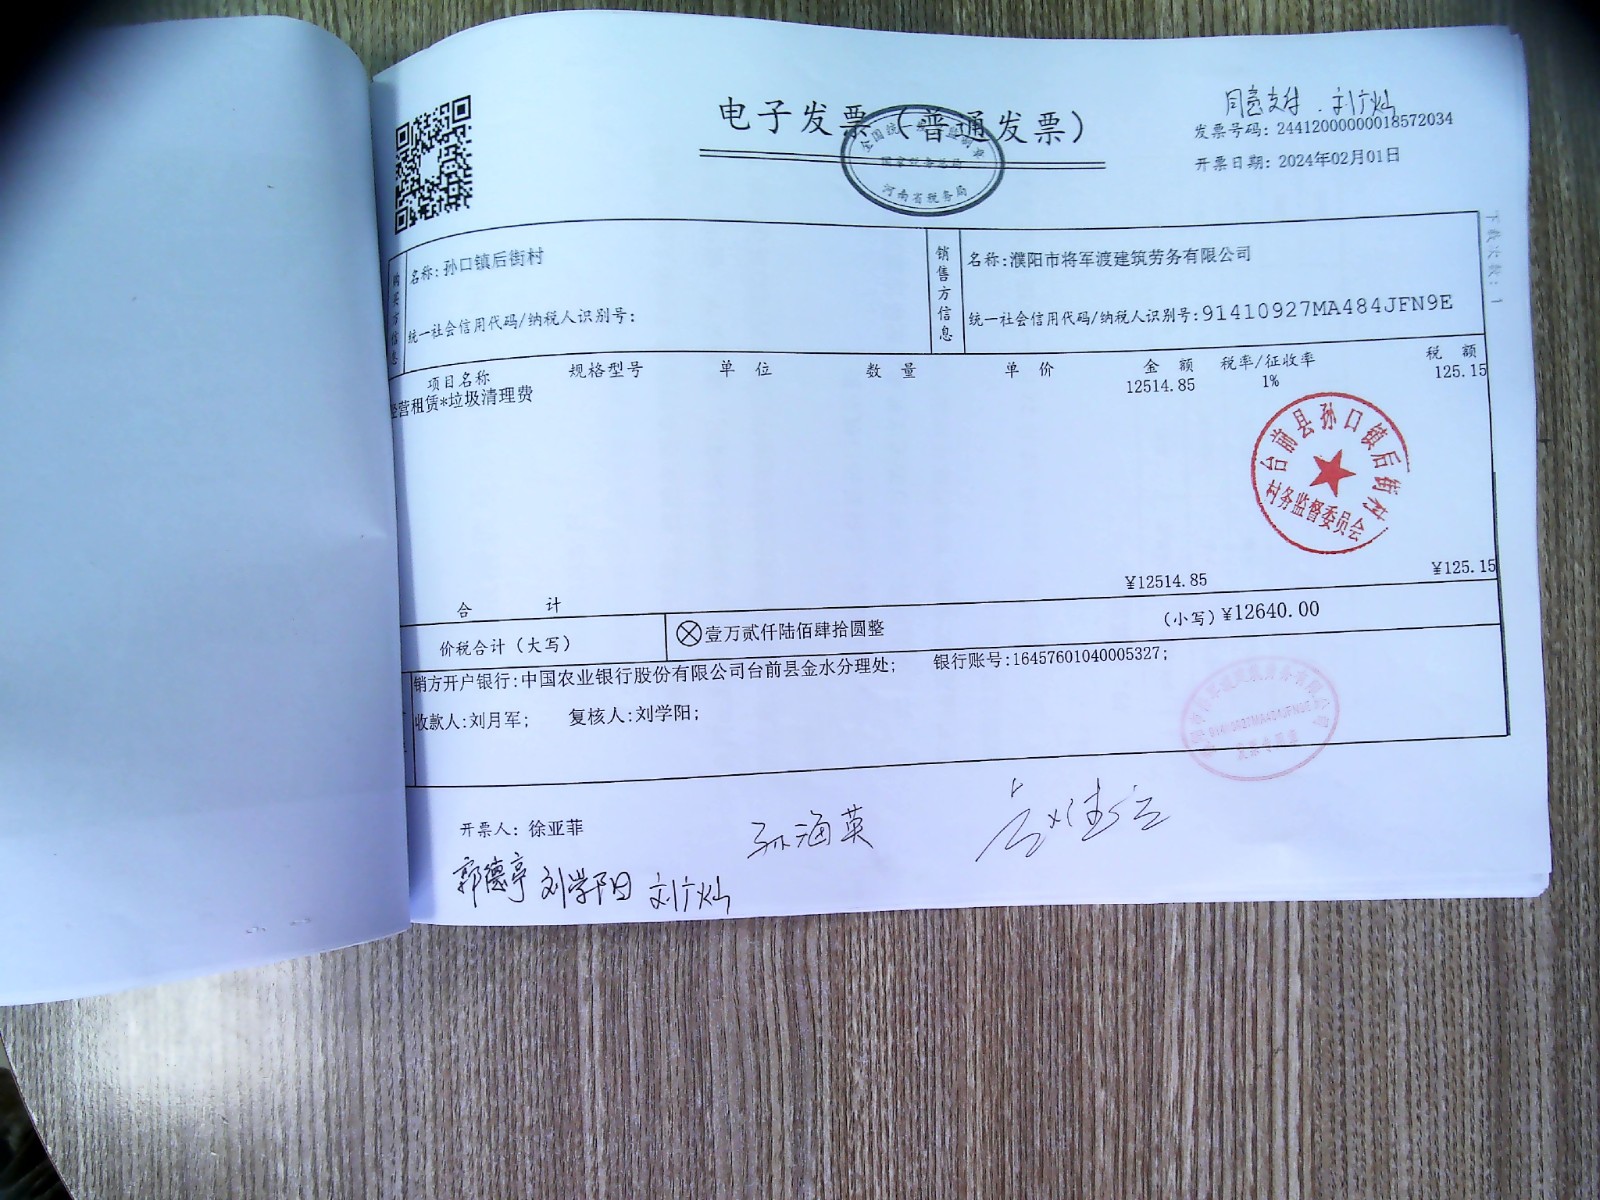 电子发票（普通发票）
同意支付.刘广灿
发票号码: 24412000000018572034
开票日期: 2024年02月01日
国家税务总局
河南省税务局
下载次数: 1
购买方信息
名称: 孙口镇后街村
统一社会信用代码/纳税人识别号:
销售方信息
名称:濮阳市将军渡建筑劳务有限公司
统一社会信用代码/纳税人识别号:91410927MA484JFN9E
项目名称 规格型号 单位 数量 单价 金额 税率/征收率 税额
经营租赁*垃圾清理费 12514.85 1% 125.15
台前县孙口镇后街村
村务监督委员会
合计 ¥12514.85 ¥125.15
价税合计（大写） ⊗壹万贰仟陆佰肆拾圆整 （小写）¥12640.00
销方开户银行:中国农业银行股份有限公司台前县金水分理处; 银行账号:16457601040005327;
收款人:刘月军; 复核人:刘学阳;
开票人: 徐亚菲
孙海英
郭德亭 刘学阳 刘广灿